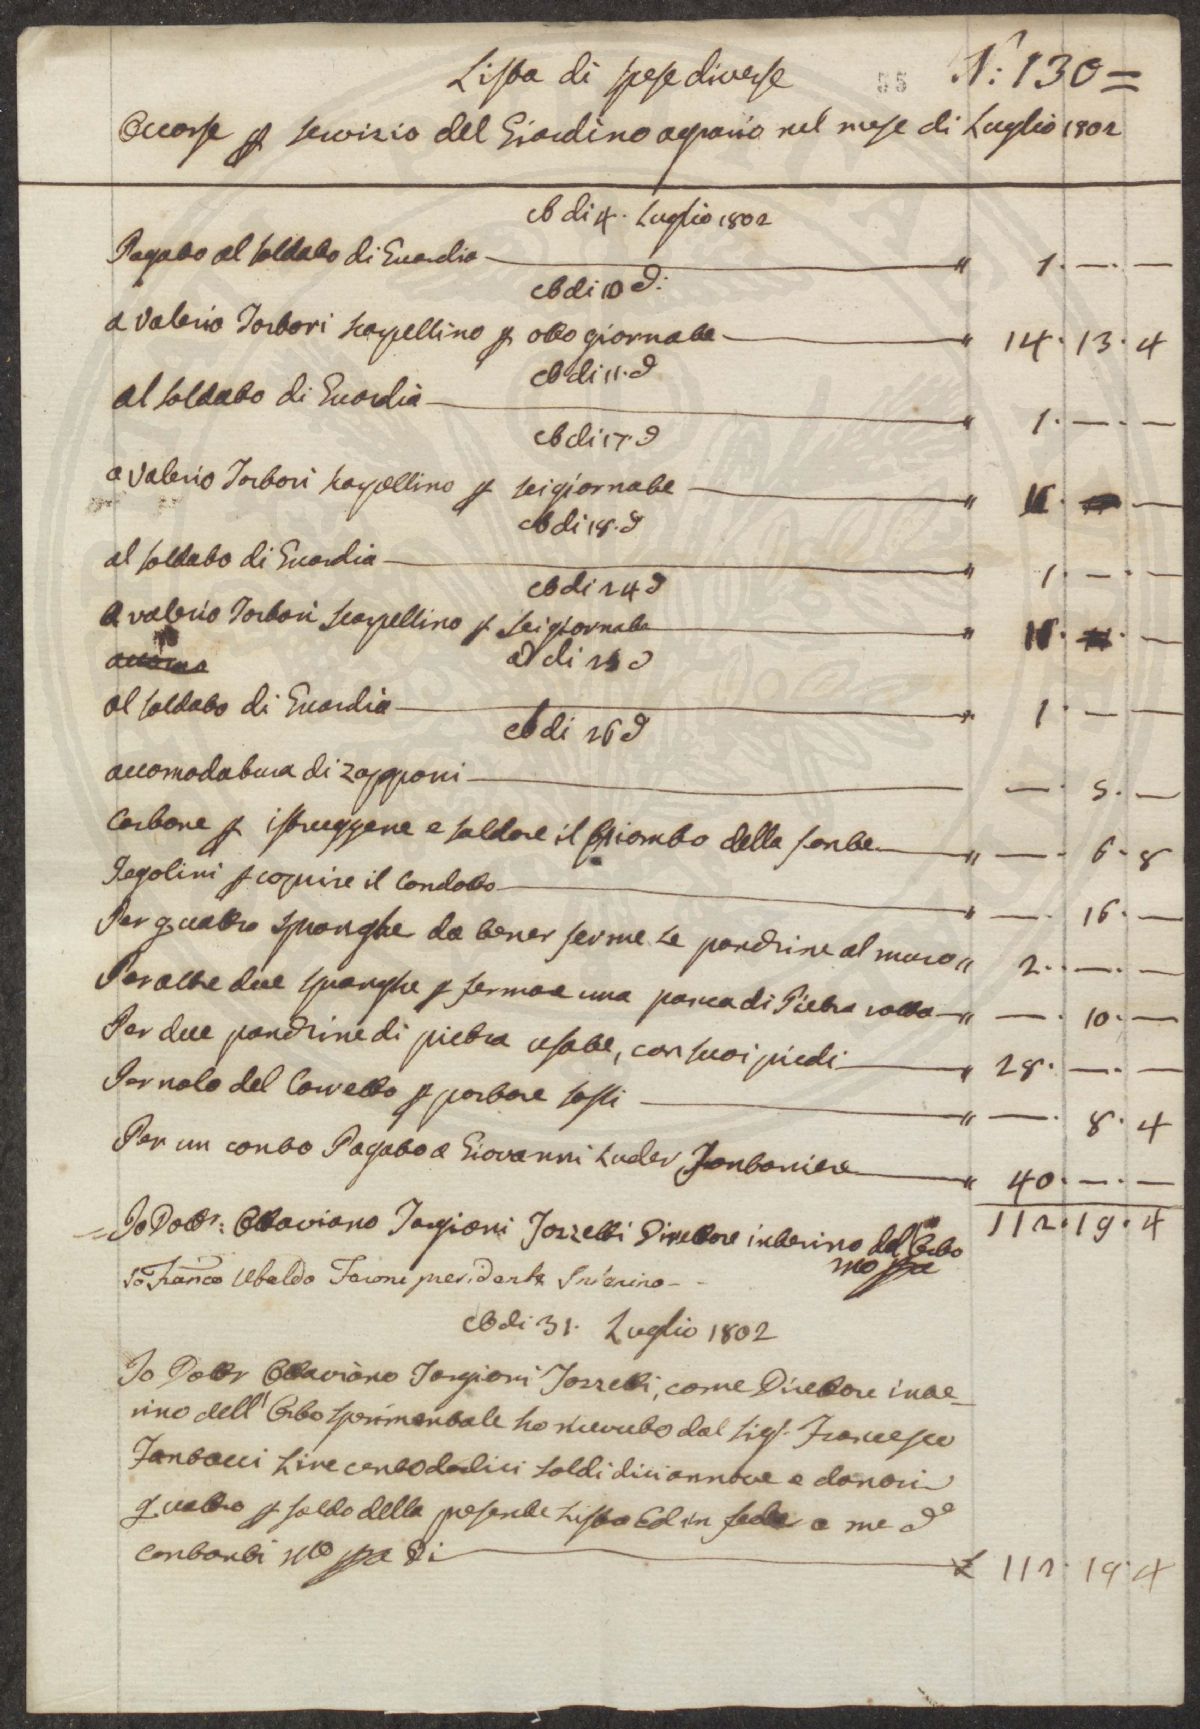 Lista di spese diverse 55 N: 130=
Occorse p servizio del Giardino agrario nel mese di Luglio 1802
A di 4. Luglio 1802
Pagato al soldato di Guardia " 1. — . —
A di 10 d:
a Valerio Torbori scarpellino p otto giornate " 14. 13. 4
A di 11. d
al soldato di Guardia " 1. — . —
A di 17. d
a Valerio Torbori scarpellino p sei giornate " 11. —
A di 18. d
al soldato di Guardia " 1. — . —
A di 24 d
a Valerio Torbori scarpellino p sei giornate " 11. —
A di 25 d
al soldato di Guardia " 1. — —
A di 26 d
accomodatura di zapponi — . 5. —
Carbone p istruggere e saldare il Piombo della fonte " — . 6. 8
Tegolini p coprire il Condotto " — . 16. —
Per quattro spranghe da tener ferme le panchine al muro " 2. — . —
Per altre due spranghe p fermare una panca di Pietra rotta " — . 10. —
Per due panchine di pietra usate, con suoi piedi " 28. — . —
Per nolo del Carretto p portare sassi " — . 8. 4
Per un conto Pagato a Giovanni Luder Fontaniere " 40. — . —
112. 19. 4
Io Dottr: Ottaviano Targioni Tozzetti Direttore interino del Orto
mo ppa
Io Franco Ubaldo Feroni presidente Interino
A di 31. Luglio 1802
Io Dottr Ottaviano Targioni Tozzetti, come Direttore inte=
rino dell' Orto sperimentale ho ricevuto dal Sigr. Francesco
Fantacci Lire cento dodici soldi diciannove e denari
quattro p saldo della presente Lista Ed in fede a me d°
contanti mo ppa Di £ 112. 19. 4